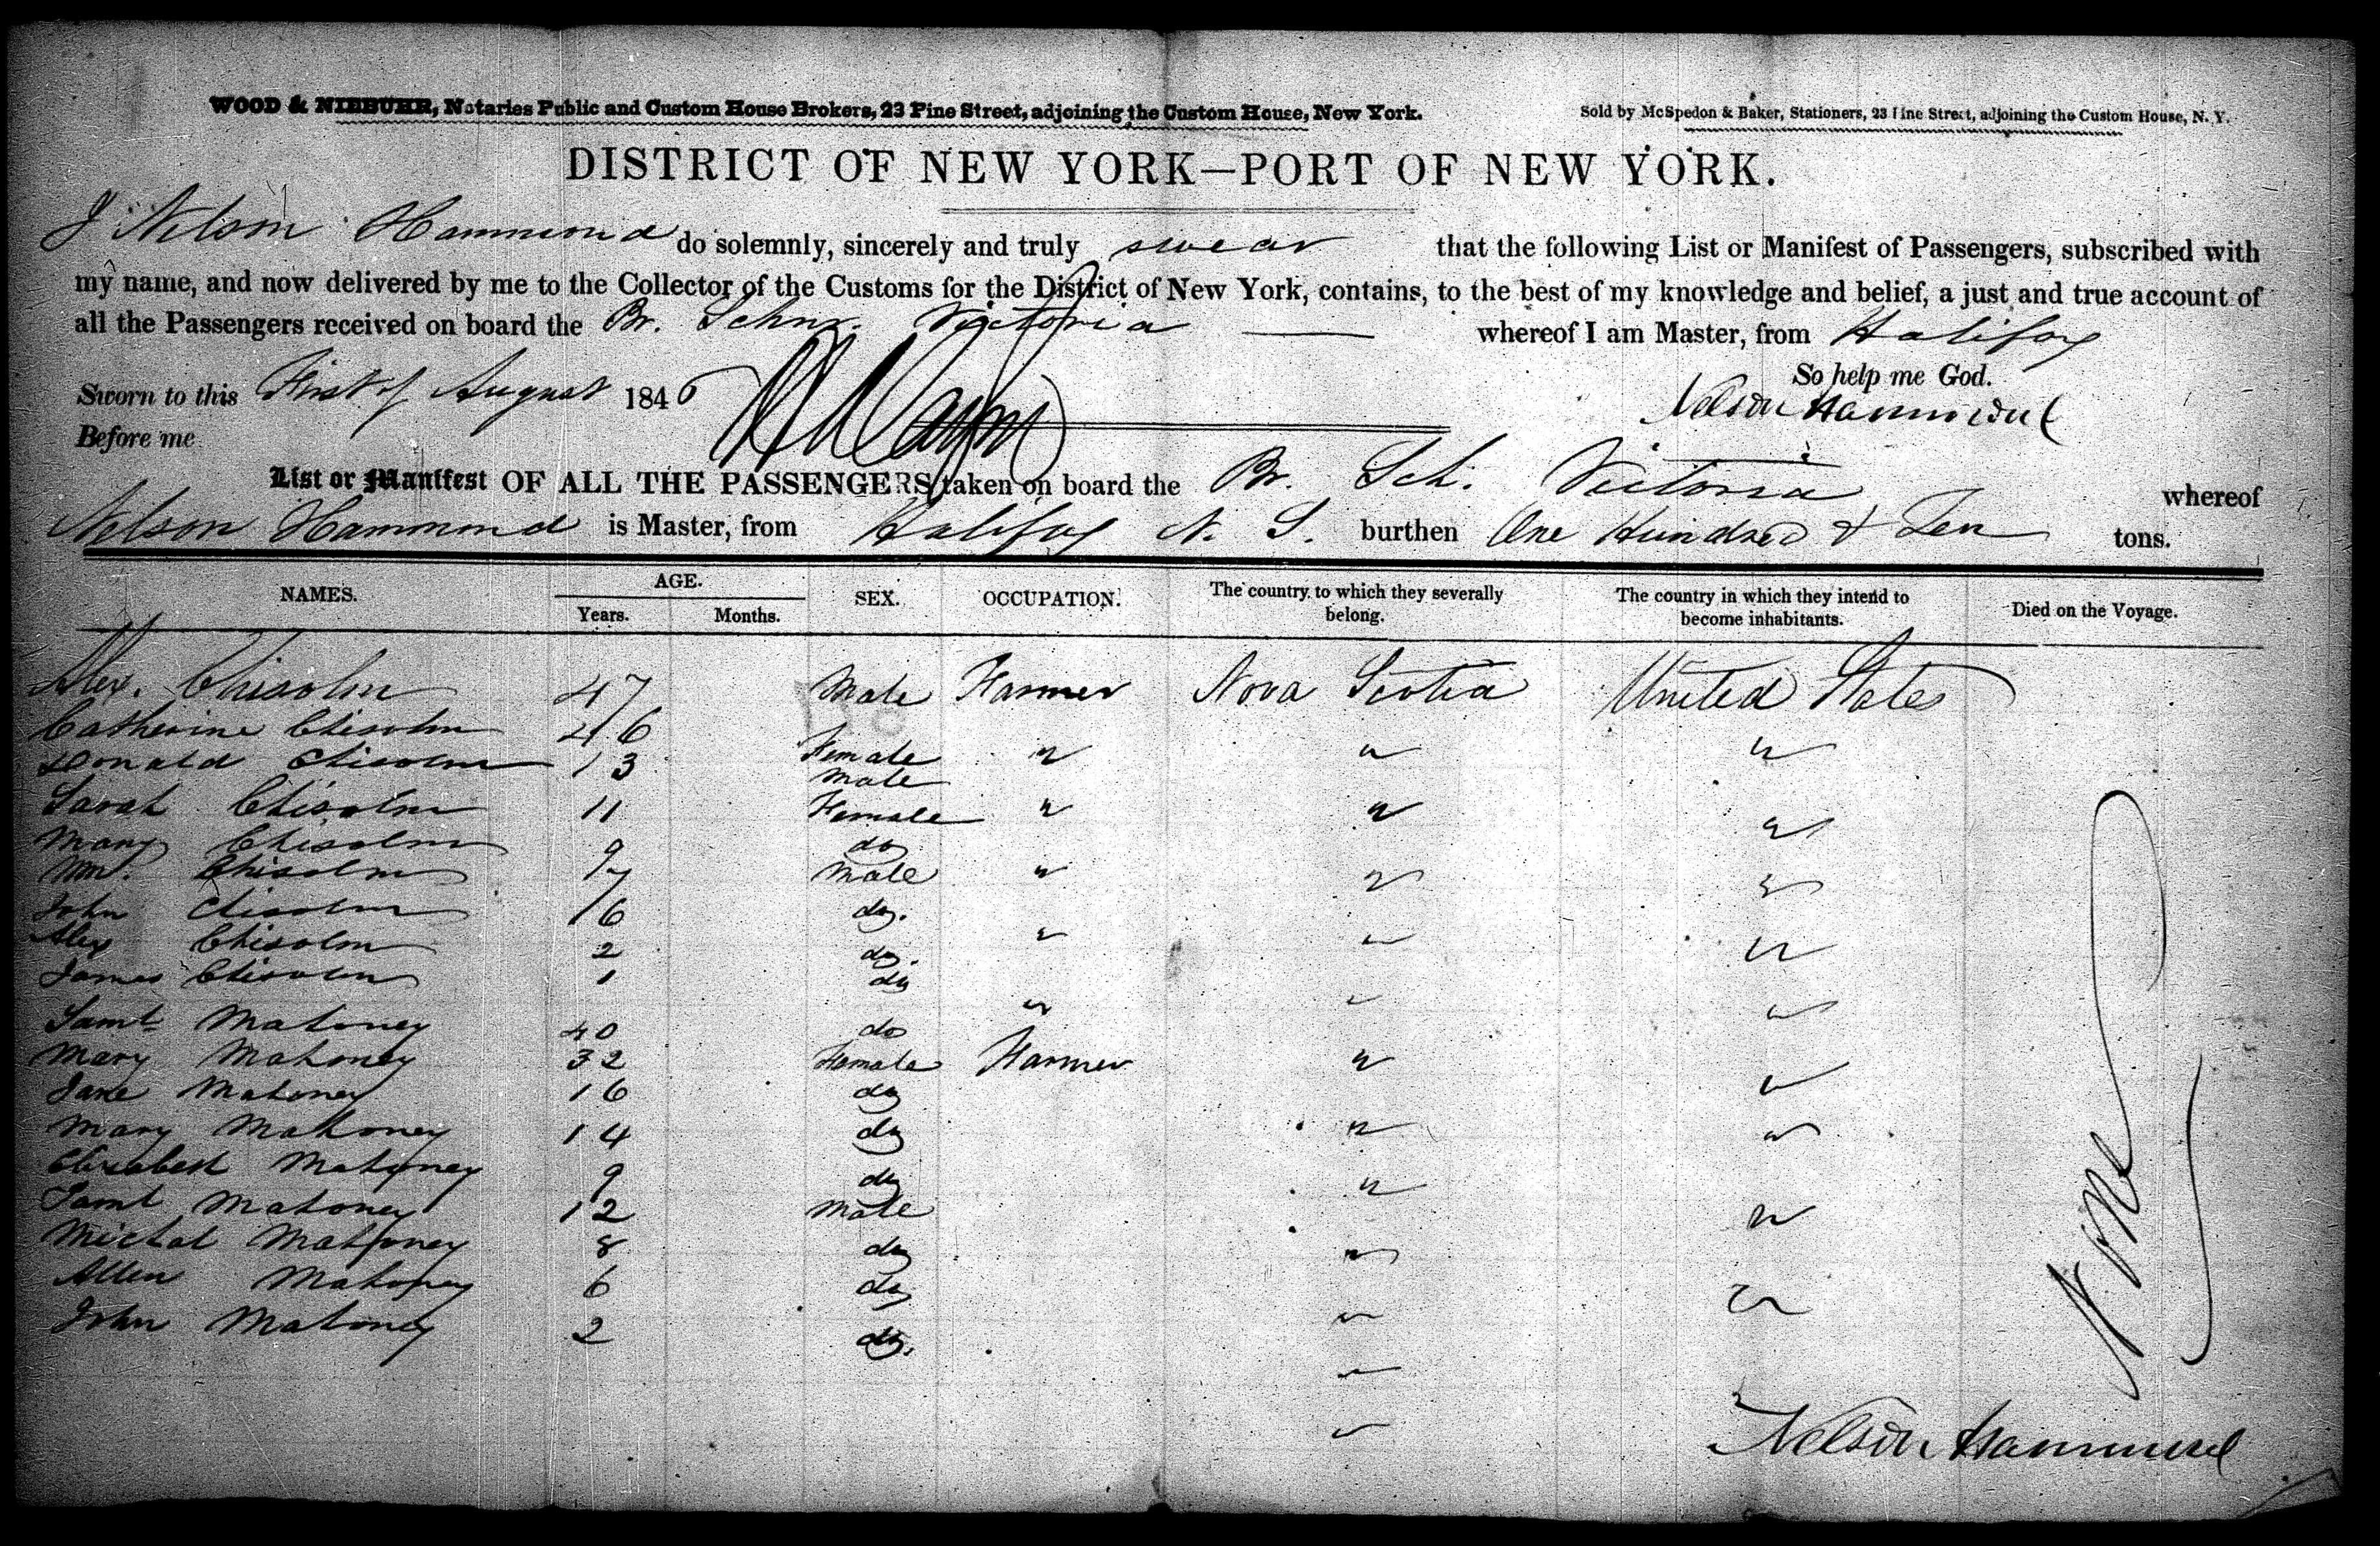 WOOD & NIEBUHR, Notaries Public and Custom House Brokers, 23 Pine Street, adjoining the Custom House, New York. Sold by McSpedon & Baker, Stationers, 23 Pine Street, adjoining the Custom House, N. Y.
DISTRICT OF NEW YORK—PORT OF NEW YORK.
I Nelson Hammond do solemnly, sincerely and truly swear that the following List or Manifest of Passengers, subscribed with
my name, and now delivered by me to the Collector of the Customs for the District of New York, contains, to the best of my knowledge and belief, a just and true account of
all the Passengers received on board the Br. Schnr. Victoria whereof I am Master, from Halifax
So help me God.
Sworn to this First of August 1846 Nelson Hammond
Before me
List or Manifest OF ALL THE PASSENGERS taken on board the Br. Sch. Victoria whereof
Nelson Hammond is Master, from Halifax N. S. burthen One Hundred & Ten tons.
NAMES. AGE. Years. Months. SEX. OCCUPATION. The country to which they severally belong. The country in which they intend to become inhabitants. Died on the Voyage.
Alex. Chisolm 47 Male Farmer Nova Scotia United States
Catherine Chisolm 46 Female " " "
Donald Chisolm 13 Male
Sarah Chisolm 11 Female " " "
Mary Chisolm 9 do
Wm. Chisolm 7 Male " " "
John Chisolm 6 do.
Alex Chisolm 2 do. " " "
James Chisolm 1 do
Saml Mahoney 40 do " " "
Mary Mahoney 32 Female Farmer " "
Jane Mahoney 16 do
Mary Mahoney 14 do " "
Elizabeth Mahoney 9 do "
Saml Mahoney 12 Male "
Michal Mahoney 8 do "
Allen Mahoney 6 do " "
John Mahoney 2 do. "
"
None
Nelson Hammond